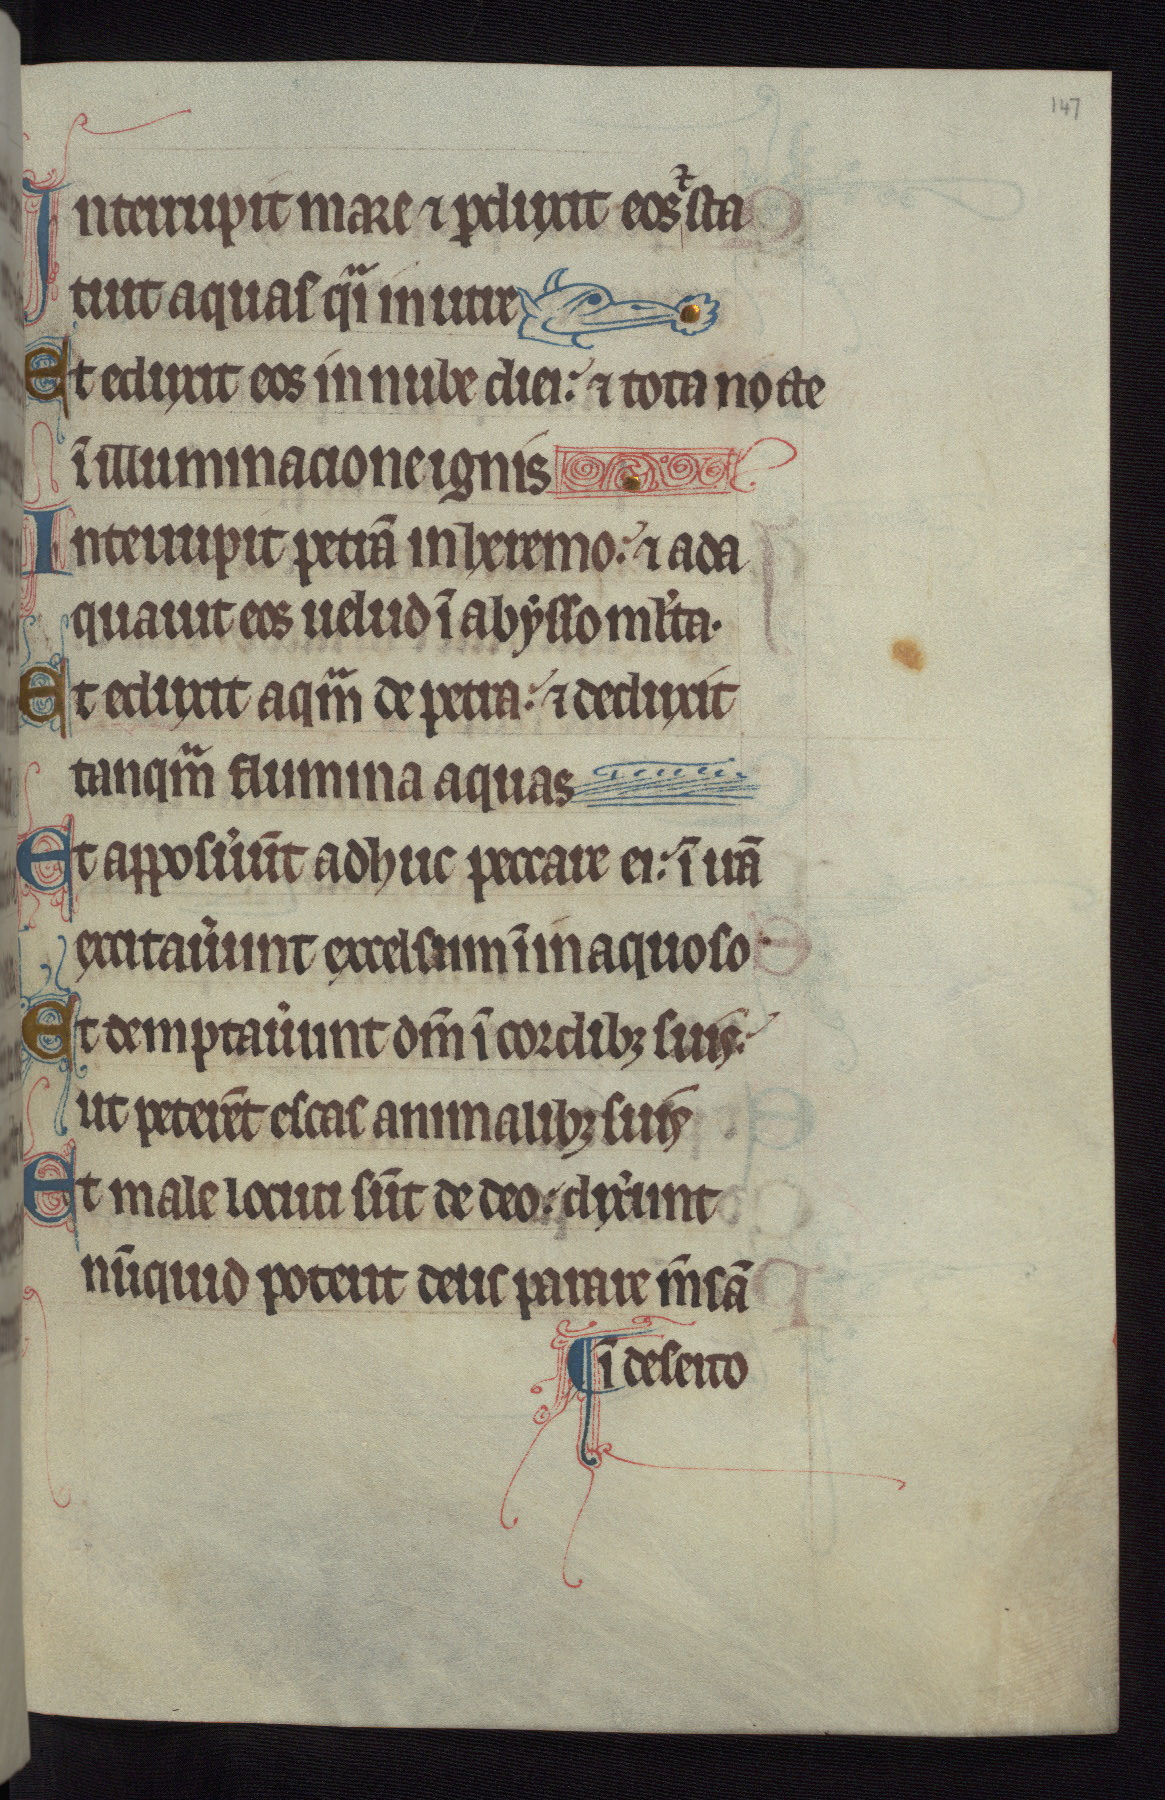 147
Interrupit mare ⁊ ꝑduxit eos ⁊ sta
tuit aquas q̃i in utre
Et eduxit eos in nube diei: ⁊ tota nocte
ĩ illuminacione ignis
Interrupit petrã in heremo: ⁊ ada
quauit eos uelud ĩ abẏsso ml̾ta.
Et eduxit aqm̃ de petra: ⁊ deduxit
tanqm̃ flumina aquas
Et apposu̾ũt adhuc peccare ei: ĩ irã
excitau̾unt excelsum ĩ inaquoso
Et temptau̾unt dm̃ ĩ cordibꝫ suis:
ut peterẽt escas animalibꝫ suis
Et male locuti sũt de deo: dix̾unt
nũquid poterit deus parare m̃sã
ĩ deserto